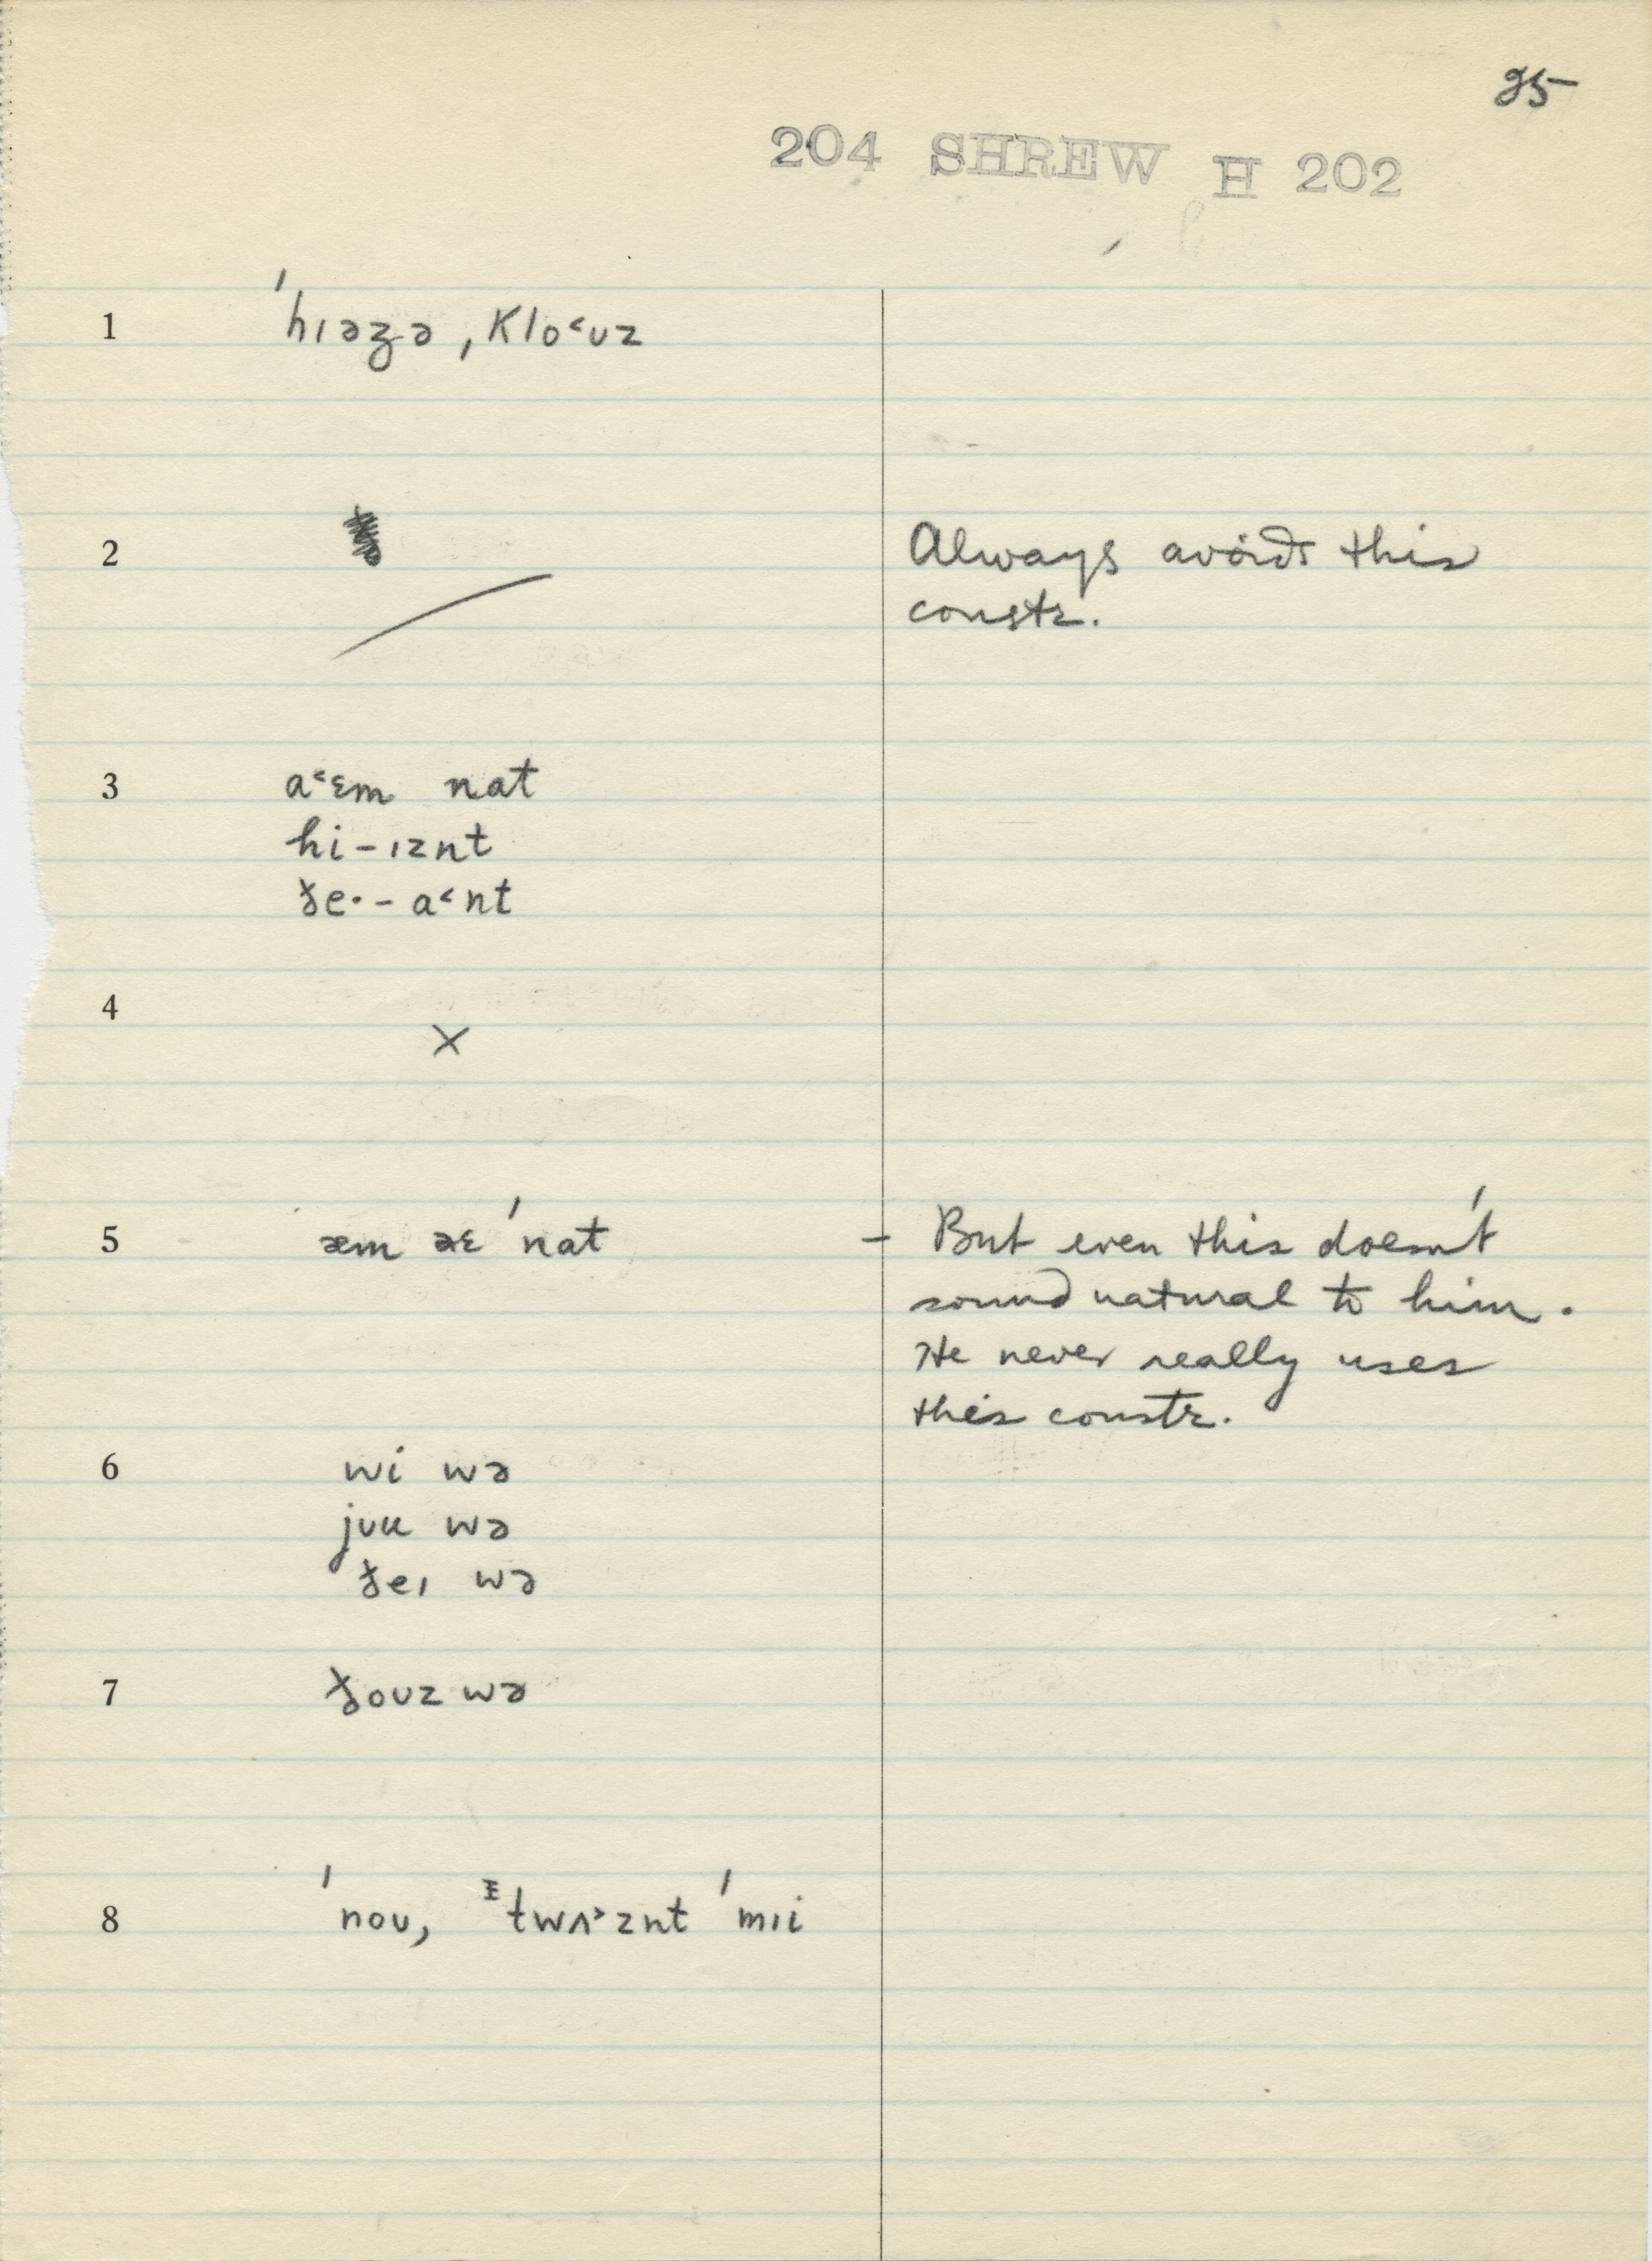 25
204 SHREW H 202
1 ˈhɪəzə, klo˂ʊz
2 Always avoids this
constr.
3 a˂ɛm nat
hi-ɪznt
ðe·- a˂nt
4 ×
5 æm əɛ ˈnat - But even this doesn't
sound natural to him.
He never really uses
this constr.
6 wi wə
jʊu wə
ðeɪ wə
7 ðoʊz wə
8 ˈnoʊ, ɪtwʌ˃znt ˈmɪi